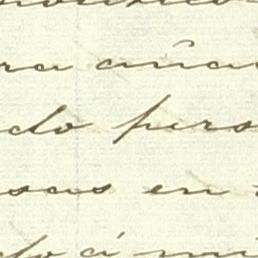 ra aña
do pers
sas en
do á mi